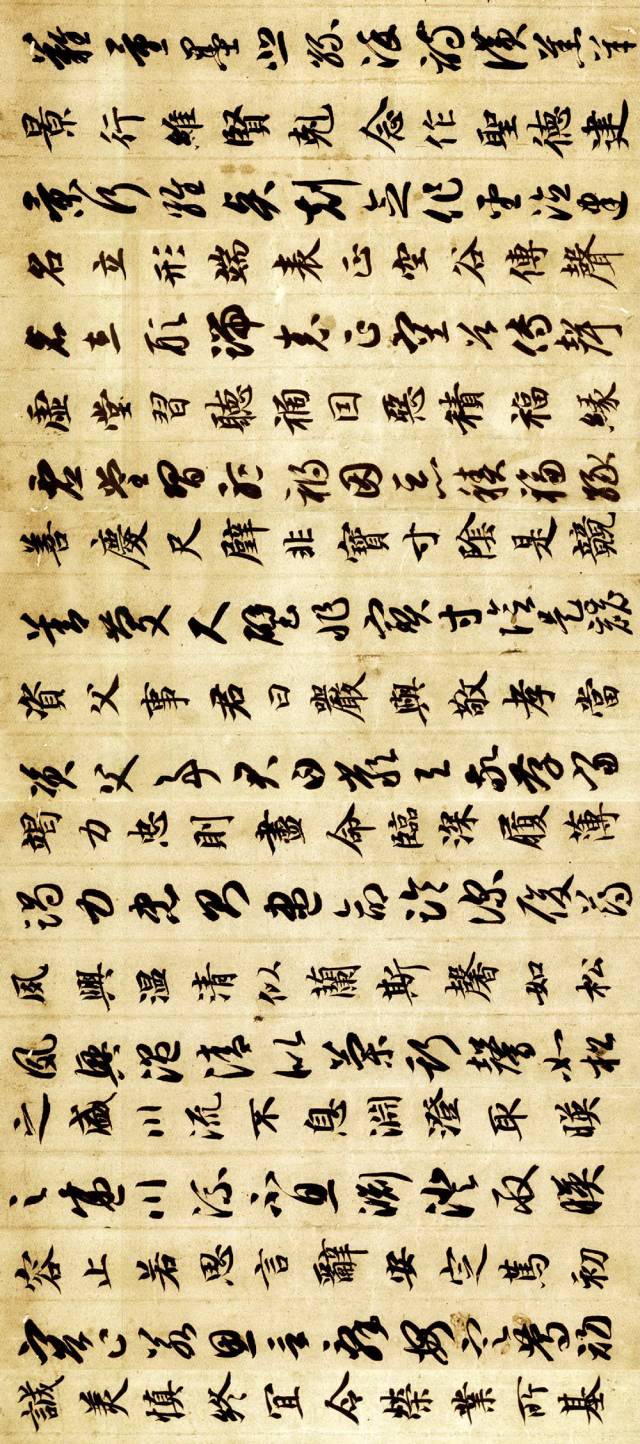 難量墨悲絲染詩讚羔羊
景行維賢剋念作聖德建
景行維賢剋念作聖德建
名立形端表正空谷傳聲
名立形端表正空谷傳聲
虛堂習聽禍囙惡積福緣
虛堂習聽禍因惡積福緣
善慶尺璧非寶寸陰是競
善慶尺璧非寶寸陰是競
資父事君曰嚴與敬孝當
資父事君曰嚴與敬孝當
竭力忠則盡命臨深履薄
竭力忠則盡命臨深履薄
夙興温清似蘭斯馨如松
夙興温清似蘭斯馨如松
之盛川流不息淵澄取暎
之盛川流不息淵澄取暎
容止若思言辭安定篤初
容止若思言辭安定篤初
誠美慎終宜令榮業所基